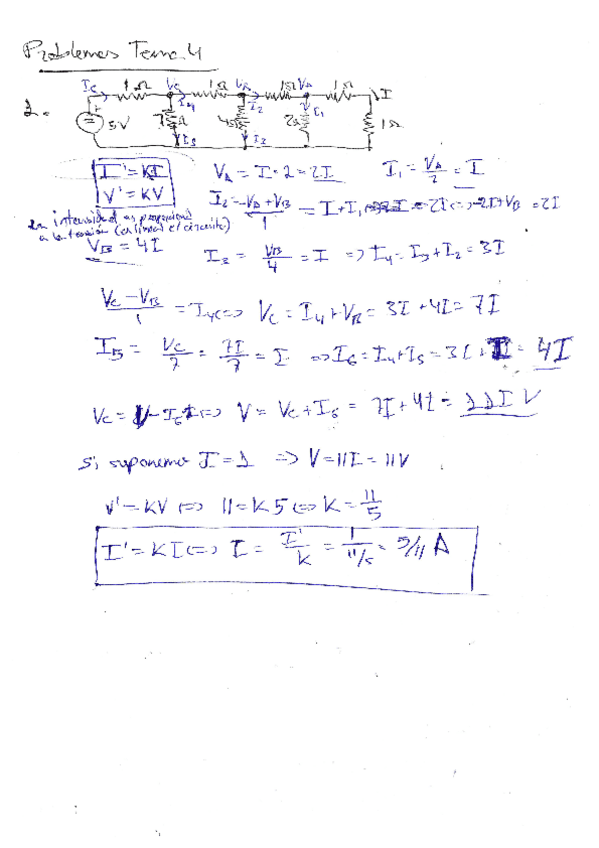 Problemas Tema 4
I6 1Ω Vc 1Ω VB 1Ω VA 1Ω I
1.- 5V 7Ω I4 4Ω I2 2Ω I1 1Ω
I5 I3
I' = KI
V' = KV
VA = I·2 = 2I I1 = VA/2 = I
La intensidad es proporcional
a la tensión (es lineal el circuito)
I2 = (-VA + VB)/1 = I + I1 = 2I <=> -2I + VB = 2I
VB = 4I
I3 = VB/4 = I => I4 = I3 + I2 = 3I
(Vc - VB)/1 = I4 <=> Vc = I4 + VB = 3I + 4I = 7I
I5 = Vc/7 = 7I/7 = I => I6 = I4 + I5 = 3I + I = 4I
Vc = V - I6·1 <=> V = Vc + I6 = 7I + 4I = 11I V
Si suponemos I = 1 => V = 11I = 11V
V' = KV <=> 11 = K5 <=> K = 11/5
I' = KI <=> I = I'/K = 1/(11/5) = 5/11 A